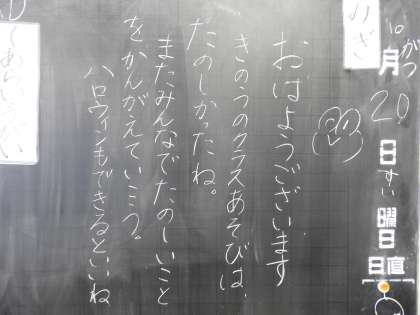 10がつ
月20日
すい
曜日
日直
おはようございます
きのうのクラスあそびは、
たのしかったね。
またみんなでたのしいこと
をかんがえていこう。
ハロウィンもできるといいね